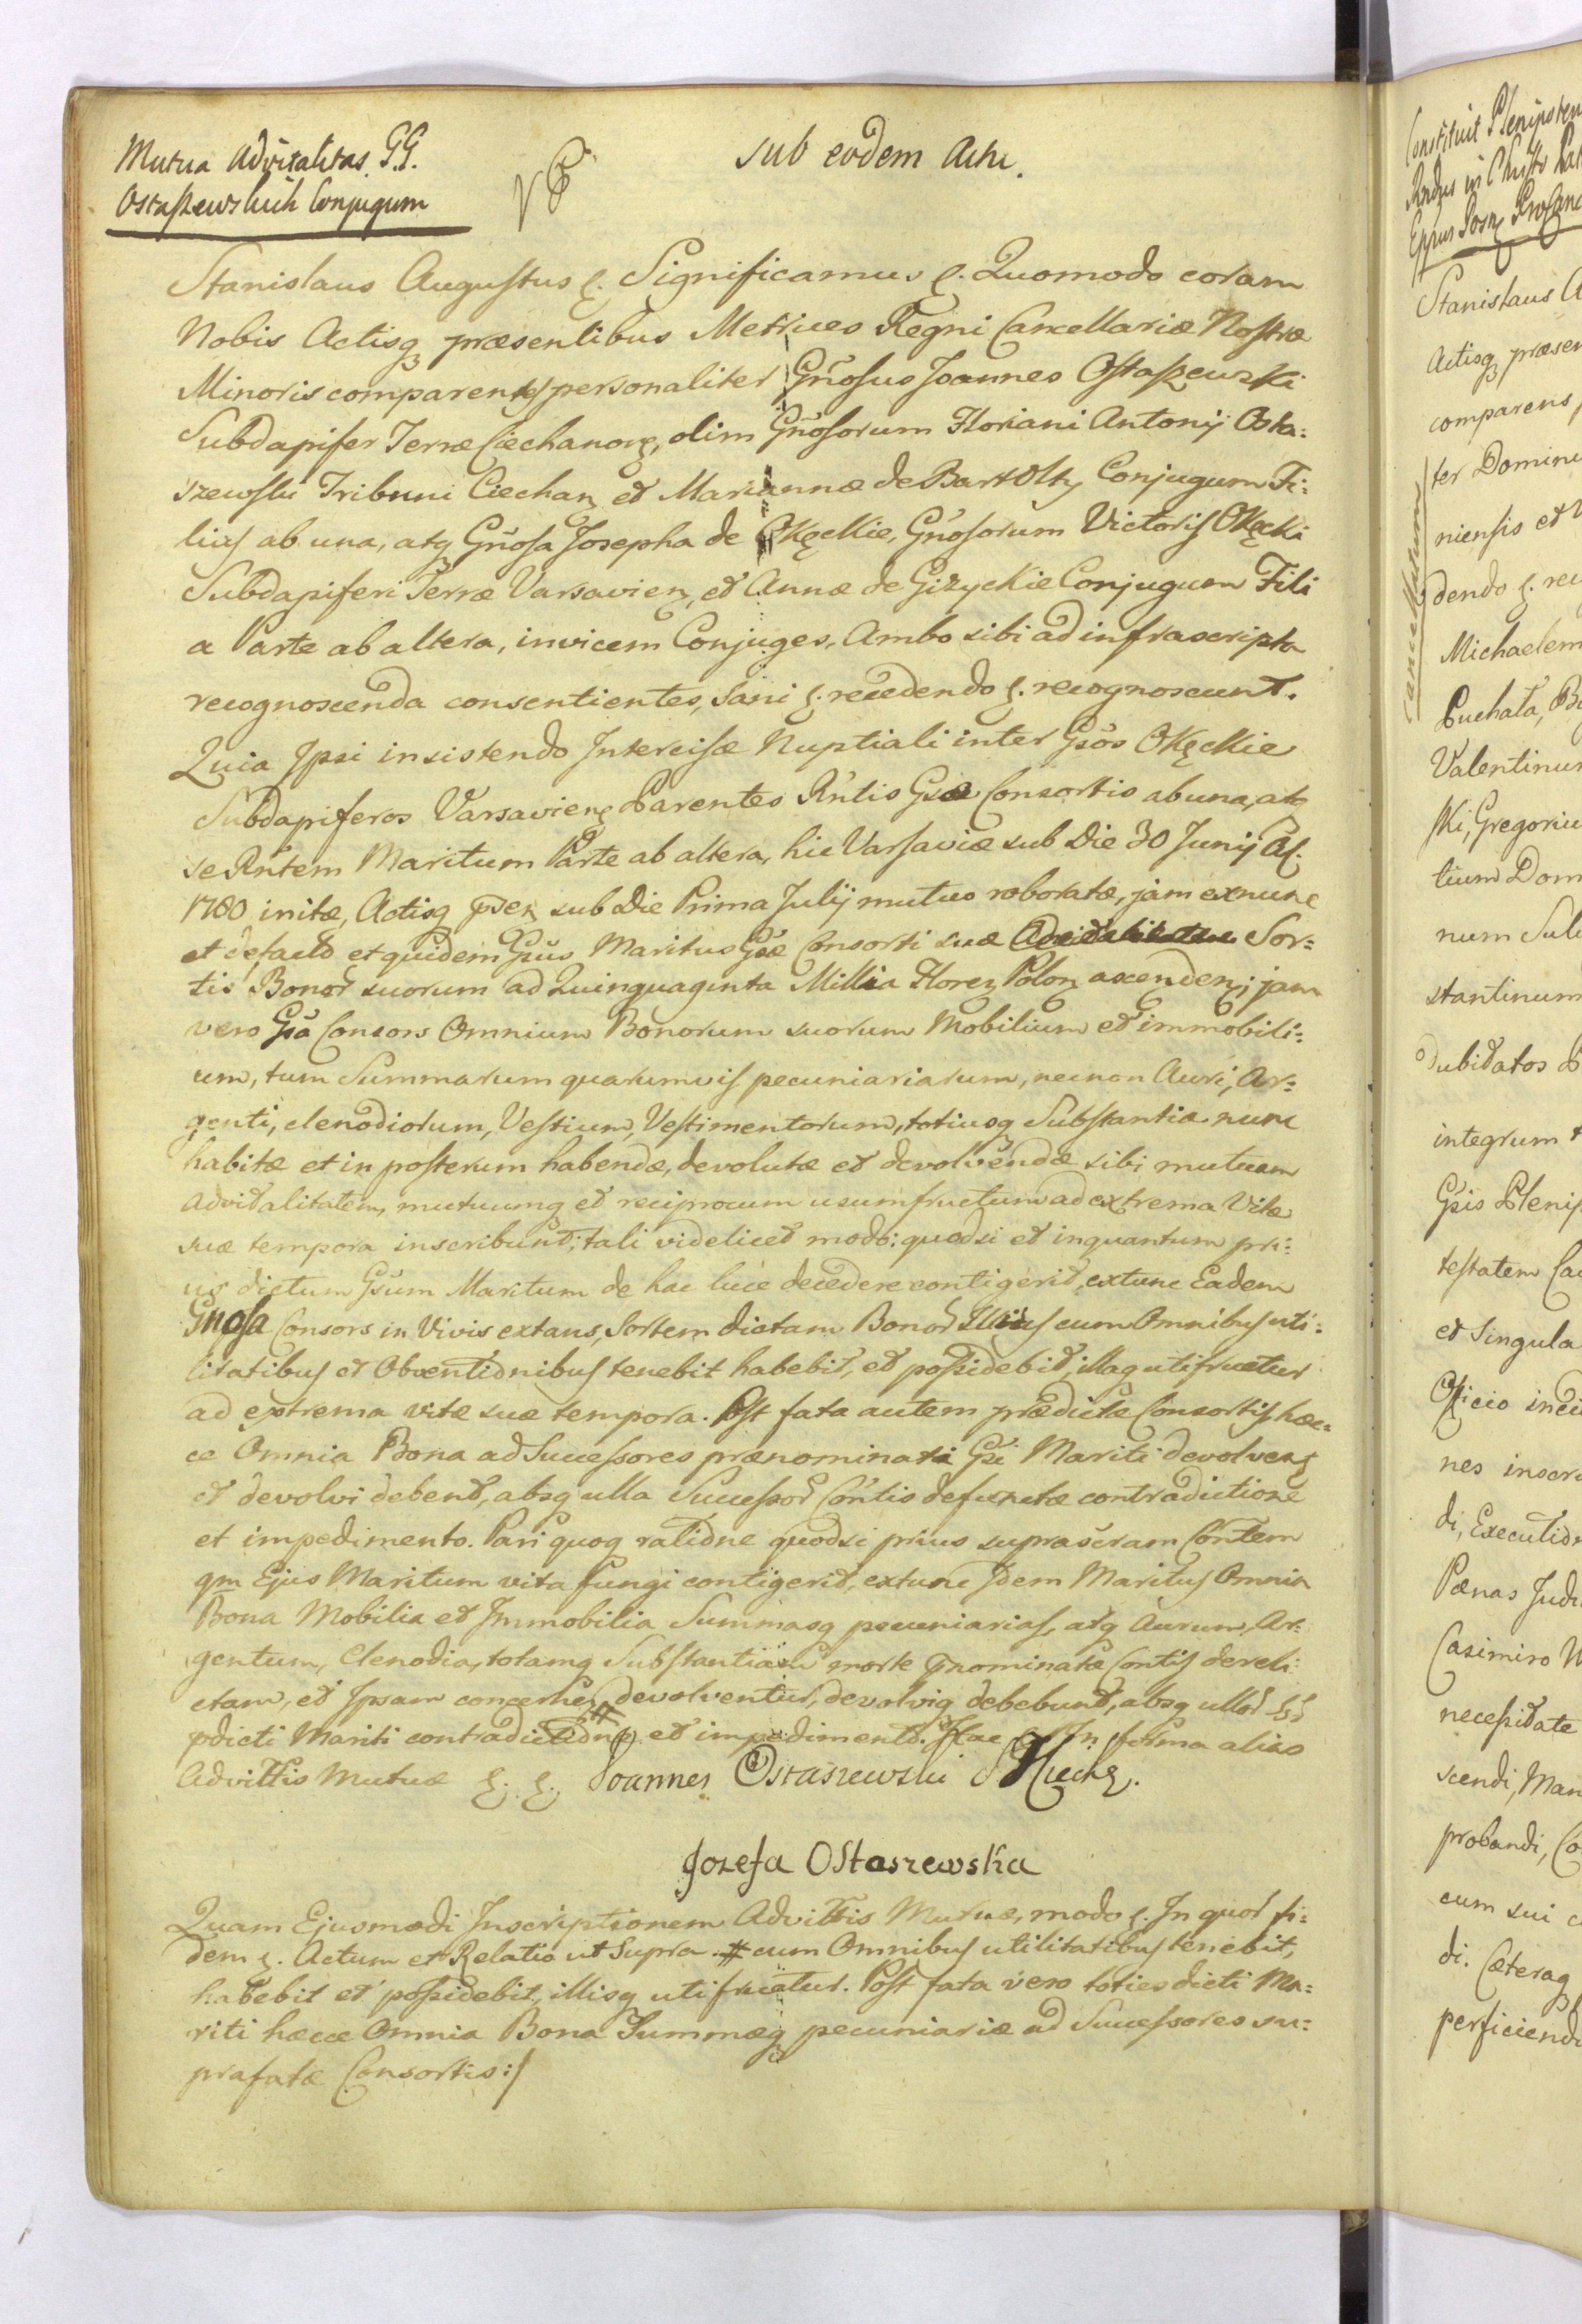 Mutua Advitalitas G.G.
Ostaszewskich Conjugum
sub eodem Actu.
Stanislaus Augustus &. Significamus &. Quomodo coram
Nobis Actisq₃ præsentibus Metrices Regni Cancellariæ Nostræ
Minoris comparentes personaliter Gñosus Joannes Ostaszewski
Subdapifer Terræ Ciechanoȝ, olim Gñosorum Floriani Antonij Osta:
szewski Tribuni Ciechanȝ et Mariannæ de Bartolty Conjugum Fi:
lius ab una, atq₃ Gñosa Josepha de Okęckie, Gñosorum Victoris Okęcki
Subdapiferi Terræ Varsavienȝ, et Annæ de Giżyckie Conjugum Fili
a Parte ab altera, invicem Conjuges, Ambo sibi ad infrascripta
recognoscenda consentientes, Sani &. recedendo &. recognoscunt.
Quia Ipsi insistendo Intercisæ Nuptiali inter Gsos Okęckie
Subdapiferos Varsavienȝ Parentes Rntis Gsæ Consortis ab una, atq
se Rntem Maritum Parte ab altera, hic Varsaviæ sub Die 30 Junij A.
1780 initæ, Actisq pdenȝ sub Die Prima Julij mutuo roboratæ, jam exnunc
et defacto et quidem Gsus Maritus Gsæ Consorti suæ Advitalitatem Sor:
tis Bonor suorum ad Quinquaginta Millia Florenȝ Polonȝ ascendenȝ; jam
vero Gsa Consors Omnium Bonorum suorum Mobilium et immobili:
um, tum Summarum quarumvis pecuniariarum, necnon Auri, Ar:
genti, clenodiorum, Vestium, Vestimentorum, totiusq Substantiæ nunc
habitæ et in posterum habendæ, devolutæ et devolvendæ sibi mutuam
advitalitatem, mutuumq et reciprocum usumfructum ad extrema Vitæ
suæ tempora inscribunt; tali videlicet modo: quodsi et inquantum pri:
us dictum Gsum Maritum de hac luce decedere contigerit, extunc Eadem
Gnosa Consors in Vivis extans, Sortem dictam Bonor Illius cum Omnibus uti:
litatibus et Obventionibus tenebit habebit, et possidebit, illaq utifruetur
ad extrema vitæ suæ tempora. Post fata autem prædictæ Consortis hæc:
ce Omnia Bona ad Successores prænominati Gsi Mariti devolvenȝ
et devolvi debent, absq ulla Successor Contis defunctæ contradictione
et impedimento. Pari quoq ratione quodsi prius suprascram Contem
qm Ejus Maritum vita fungi contigerit, extunc Idem Maritus Omnia
Bona Mobilia et Immobilia Summasq pecuniarias, atq Aurum, Ar:
gentum, Clenodia, totamq Substantiam morte pnominatæ Contis dereli:
ctam, et Ipsam concernenȝ # devolventur, devolviq debebunt, absq ullor
pdicti Mariti contradictione et impedimento. Hac In forma alias
Advittis Mutuæ &. &. Joannes Ostaszewski P Ciechȝ.
Jozefa Ostaszewska
Quam Ejusmodi Inscriptionem Advittis Mutuæ, modo &. In quor fi:
dem &. Actum et Relatio ut Supra. # cum Omnibus utilitatibus tenebit,
habebit et possidebit, illisq utifruetur. Post fata vero toties dicti Ma:
riti hæcce Omnia Bona Summæq pecuniariæ ad Successores su:
prafatæ Consortis:/
Constituit Plenipoten
Rndus in Christo Pat
Eppus Posnȝ Procanc
cancellatum
Stanislaus A
Actisq præsen
comparens,
ter Domine
niensis et
dendo &. rec
Michaelem
Puchała, B
Valentinum
ski, Gregoriu
tium Dom
num Sul
stantinum
dubitatos
integrum
Gsis Plenip
testatem Ca
et Singula
Officio inci
nes inscri
di, Execution
Pænas Judi
Casimiro W
necessitate
scendi, Man
probandi, Co
cum sui
di. Cæteraq
perficiend